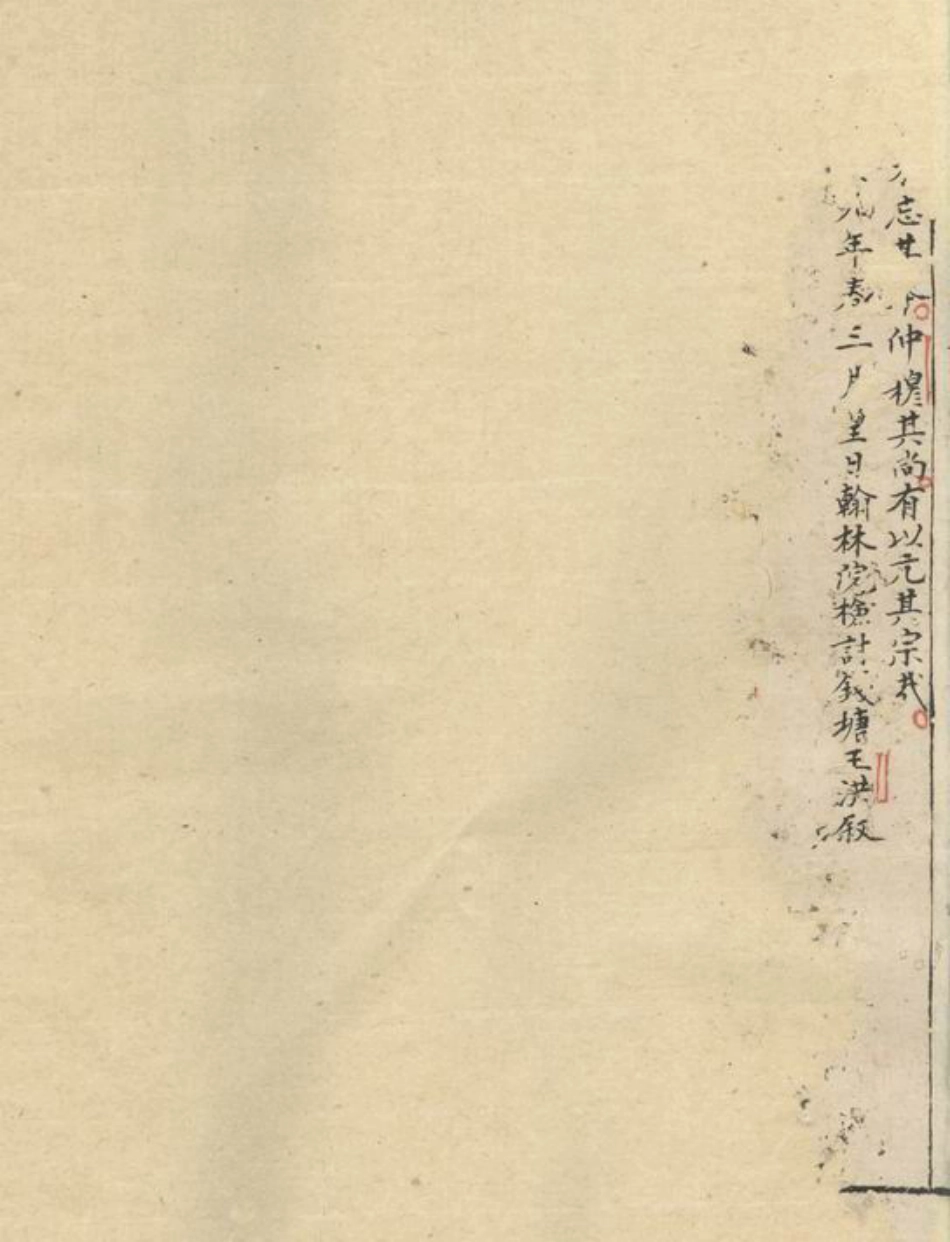 忘其仲穆其尚有以亢其宗哉
年春三月望日翰林院檢討錢塘王洪叙